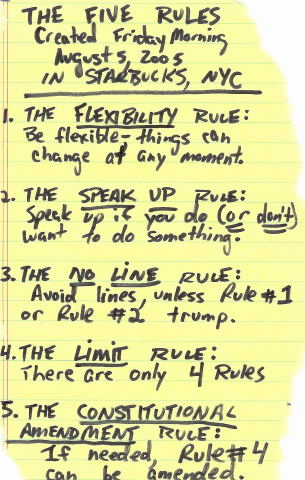 THE FIVE RULES
Created Friday Morning
August 5, 2005
IN STARBUCKS, NYC
1. THE FLEXIBILITY RULE:
Be flexible-things can
change at any moment.
2. THE SPEAK UP RULE:
Speak up if you do (or don't)
want to do something.
3. THE NO LINE RULE:
Avoid lines, unless Rule #1
or Rule #2 trump.
4. THE LIMIT RULE:
There are only 4 Rules
5. THE CONSTITUTIONAL
AMENDMENT RULE:
If needed, Rule #4
can be amended.